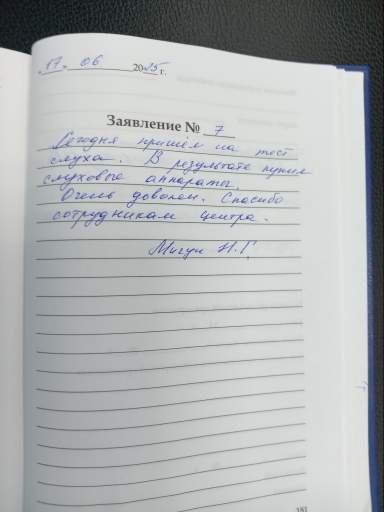 "17" 06 2025 г.
Заявление № 7
Сегодня пришёл на тест
слуха. В результате купил
слуховые аппараты.
Очень доволен. Спасибо
сотрудникам центра.
Мигун Н.Г.
181